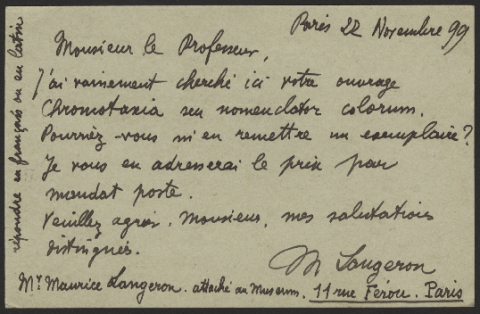 Paris 22 Novembre 99
Monsieur le Professeur,
J'ai vainement cherché ici votre ouvrage
Chromotaxia seu nomenclator colorum.
Pourriez-vous m'en remettre un exemplaire?
Je vous en adresserai le prix par
mandat poste.
Veuillez agréer, Monsieur, mes salutations
distingués.
M Langeron
Mr Maurice Langeron. attaché au Museum. 11 rue Férou. Paris
répondre en français ou en latin